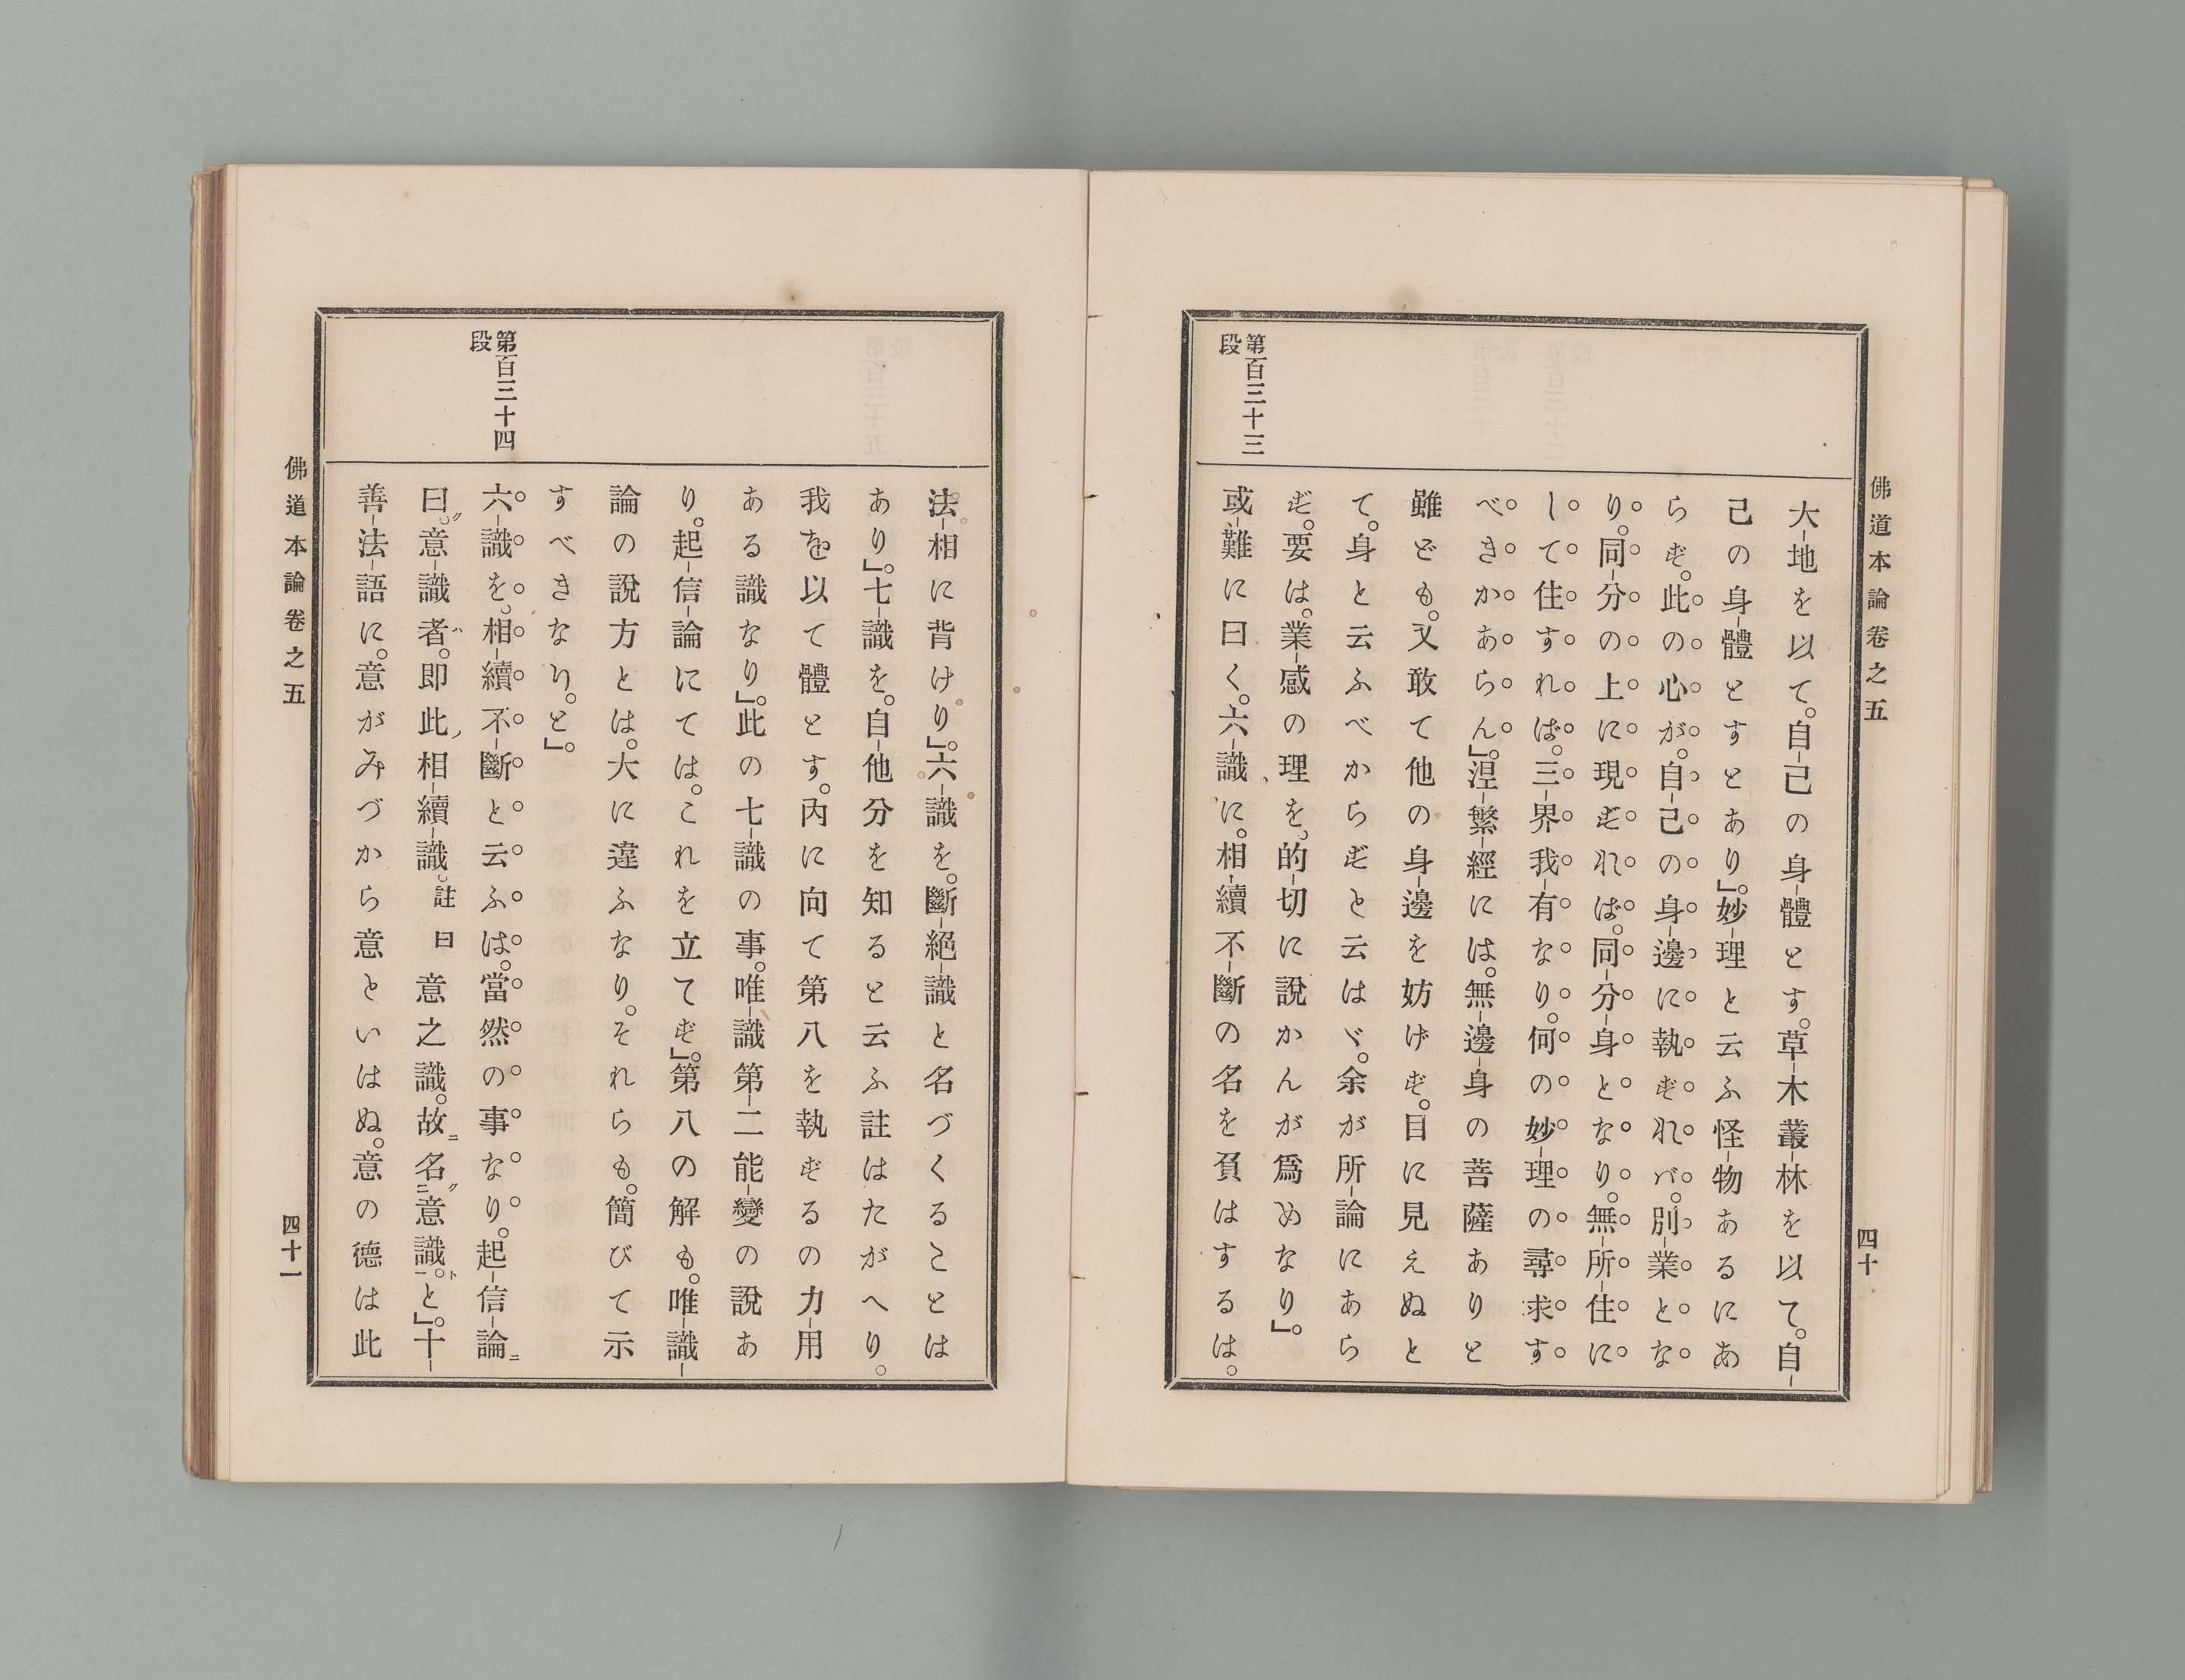 佛道本論卷之五
四十
大地を以て。自己の身體とす。草木叢林を以て。自
己の身體とすとあり」。妙理と云ふ怪物あるにあ
らず。此の心が。自己の身邊に執ずればバ。別業とな
り。同分の上に現ずれば。同分身となり。無所住に
して住すれば。三界我有なり。何の妙理の尋求す
べきかあらん」。涅槃經には。無邊身の菩薩ありと
雖ども。又敢て他の身邊を妨げず。目に見えぬと
て。身と云ふべからずと云はヾ。余が所論にあら
ず。要は。業感の理を。的切に說かんが爲めなり」。
第百三十三段
或難に曰く。六識に。相續不斷の名を負はするは。
法相に背けり」。六識を。斷絕識と名づくることは
あり」。七識を。自他分を知ると云ふ註はたがへり。
我を以て體とす。內に向て第八を執ずるの力用
ある識なり」。此の七識の事。唯識第二能變の說あ
り。起信論にては。これを立てず」。第八の解も。唯識
論の說方とは。大に違ふなり。それらも。簡びて示
すべきなり。と」。
第百三十四段
六識を。相續不斷と云ふは。當然の事なり。起信論ニ
曰ク。意識者ハ。即此ノ相續識。註曰意之識。故ニ名ク二意識一。ト と」。十
善法語に。意がみづから意といはぬ。意の德は此
佛道本論卷之五
四十一